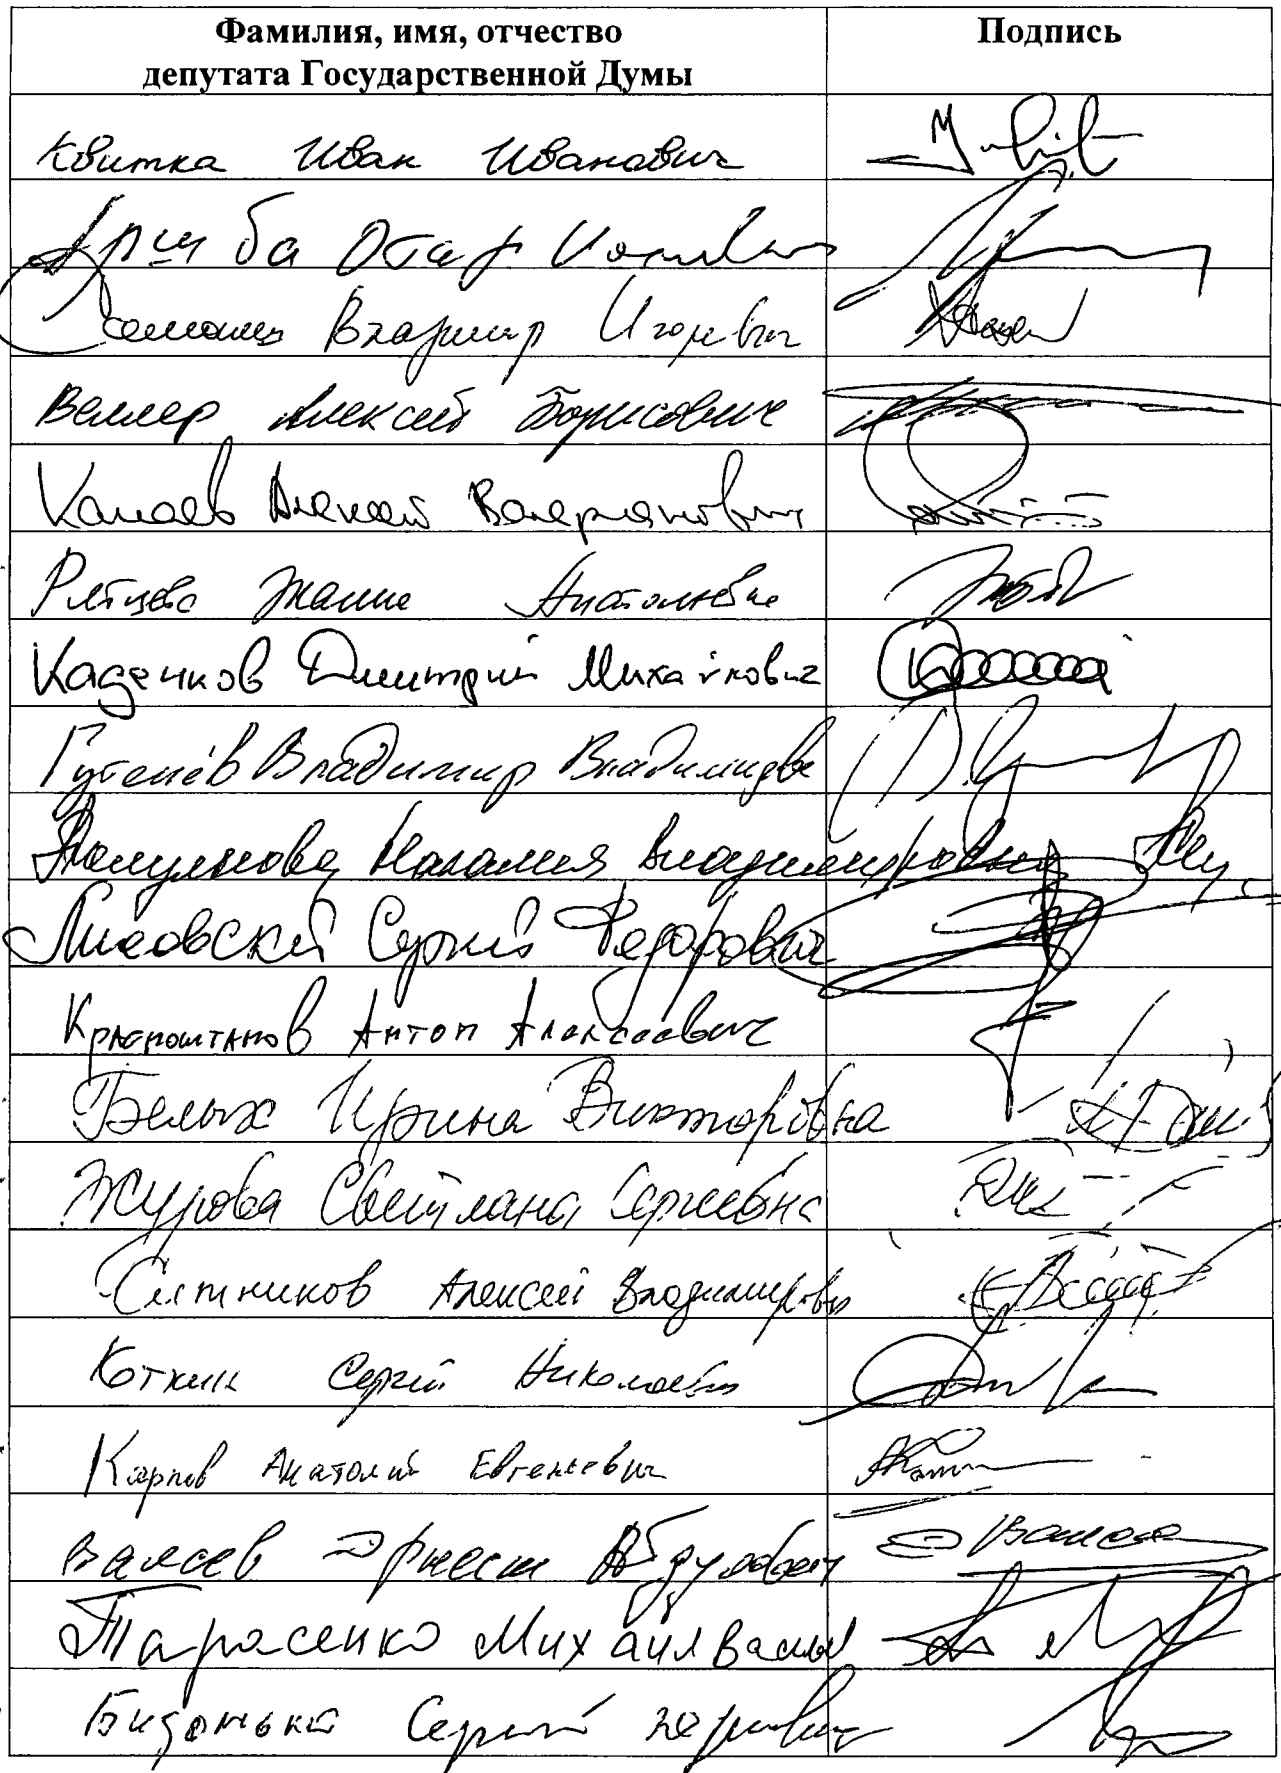 Фамилия, имя, отчество
депутата Государственной Думы
Подпись
Квитка Иван Иванович
Аршба Отар Ионович
Владимир Игоревич
Веллер Алексей Борисович
Канаев Алексей Валерианович
Рябцева Жанна Анатольевна
Каденков Дмитрий Михайлович
Гутенёв Владимир Владимирович
Полуянова Наталия Владимировна
Лисовский Сергей Федорович
Красноштанов Антон Алексеевич
Белых Ирина Викторовна
Журова Светлана Сергеевна
Ситников Алексей Владимирович
Коткин Сергей Николаевич
Карпов Анатолий Евгеньевич
Валеев Эрнест Абдулович
Тарасенко Михаил Васильевич
Бидонько Сергей Юрьевич